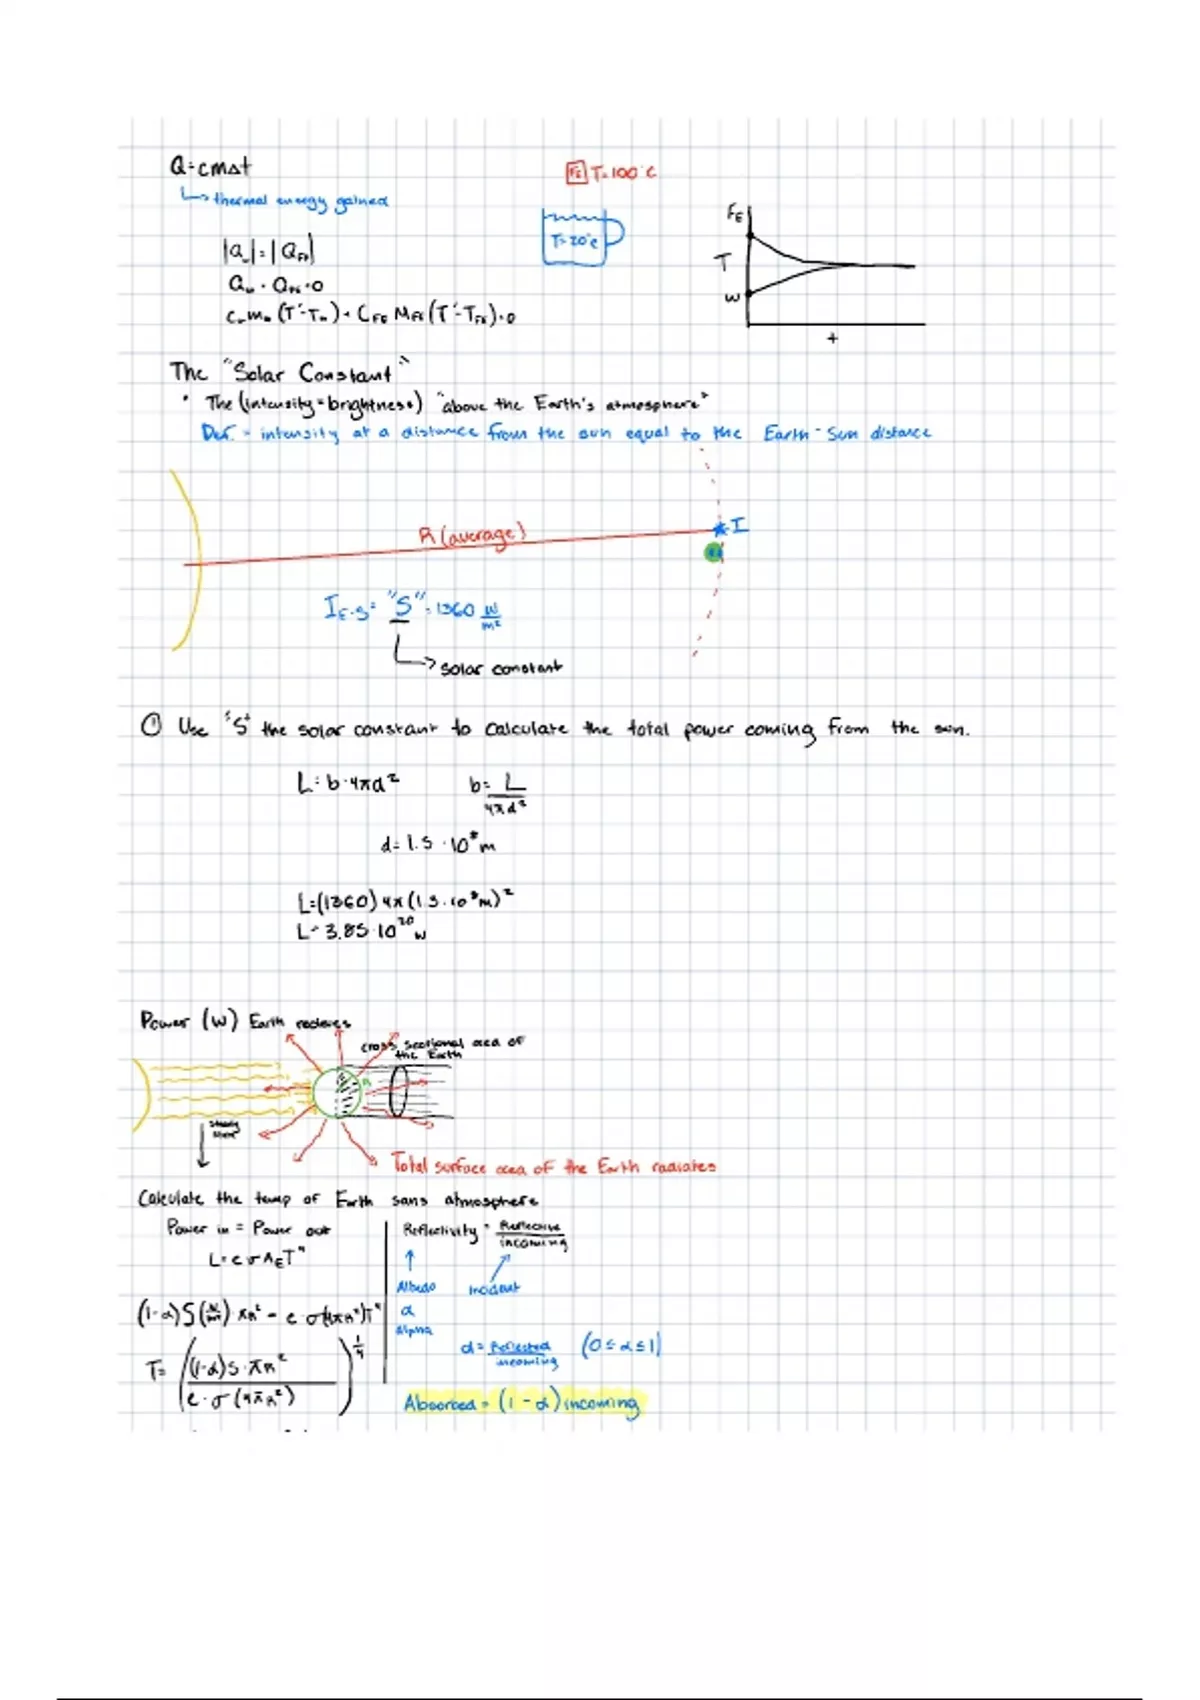 Q=cmΔt
↳ thermal energy gained
Fe T=100°C
T=20°C
|Qw|=|QFe|
Qw + QFe = 0
cwmw(T'-Tw) + CFe MFe(T'-TFe) = 0
Fe
T
w
t
The "Solar Constant"
• The (intensity = brightness) "above the Earth's atmosphere"
Def. = intensity at a distance from the sun equal to the Earth-Sun distance
R (average)
I
IE-S = "S" = 1360 W/m²
solar constant
① Use "S" the solar constant to calculate the total power coming from the sun.
L = b·4πd²
b = L/4πd²
d = 1.5 · 10⁸ m
L = (1360) 4π (1.5·10⁸m)²
L = 3.85·10²⁰ w
Power (W) Earth recieves
cross sectional area of
the Earth
R
Total surface area of the Earth radiates
Calculate the temp of Earth sans atmosphere
Power in = Power out
L = eσAET⁴
(1-α)S(W/m²)·πR² = e·σ(4πR²)T⁴
T = ((1-α)S·πR² / e·σ(4πR²))^1/4
Reflectivity = Reflective/incoming
Albedo
incident
α
alpha
α = Reflected/incoming (0≤α≤1)
Absorbed = (1-α) incoming